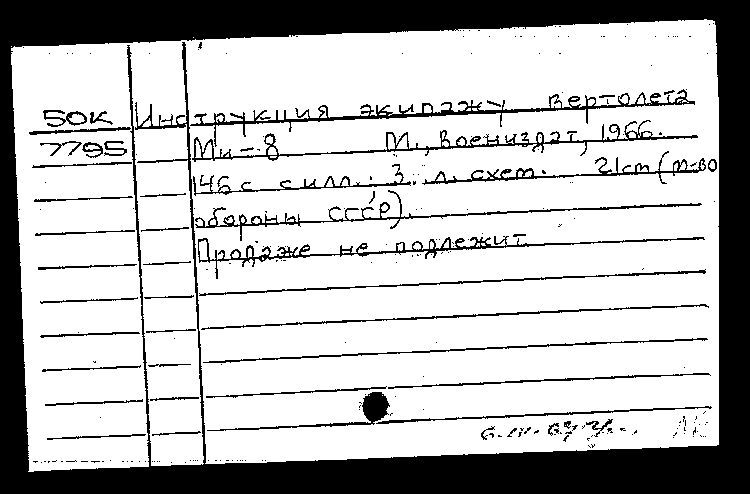 50К Инструкция экипажу вертолета
7795 Ми-8 М., Воениздат, 1966.
146 с с илл.; 3 л. схем. 21 cm (м-во
обороны СССР).
Продаже не подлежит